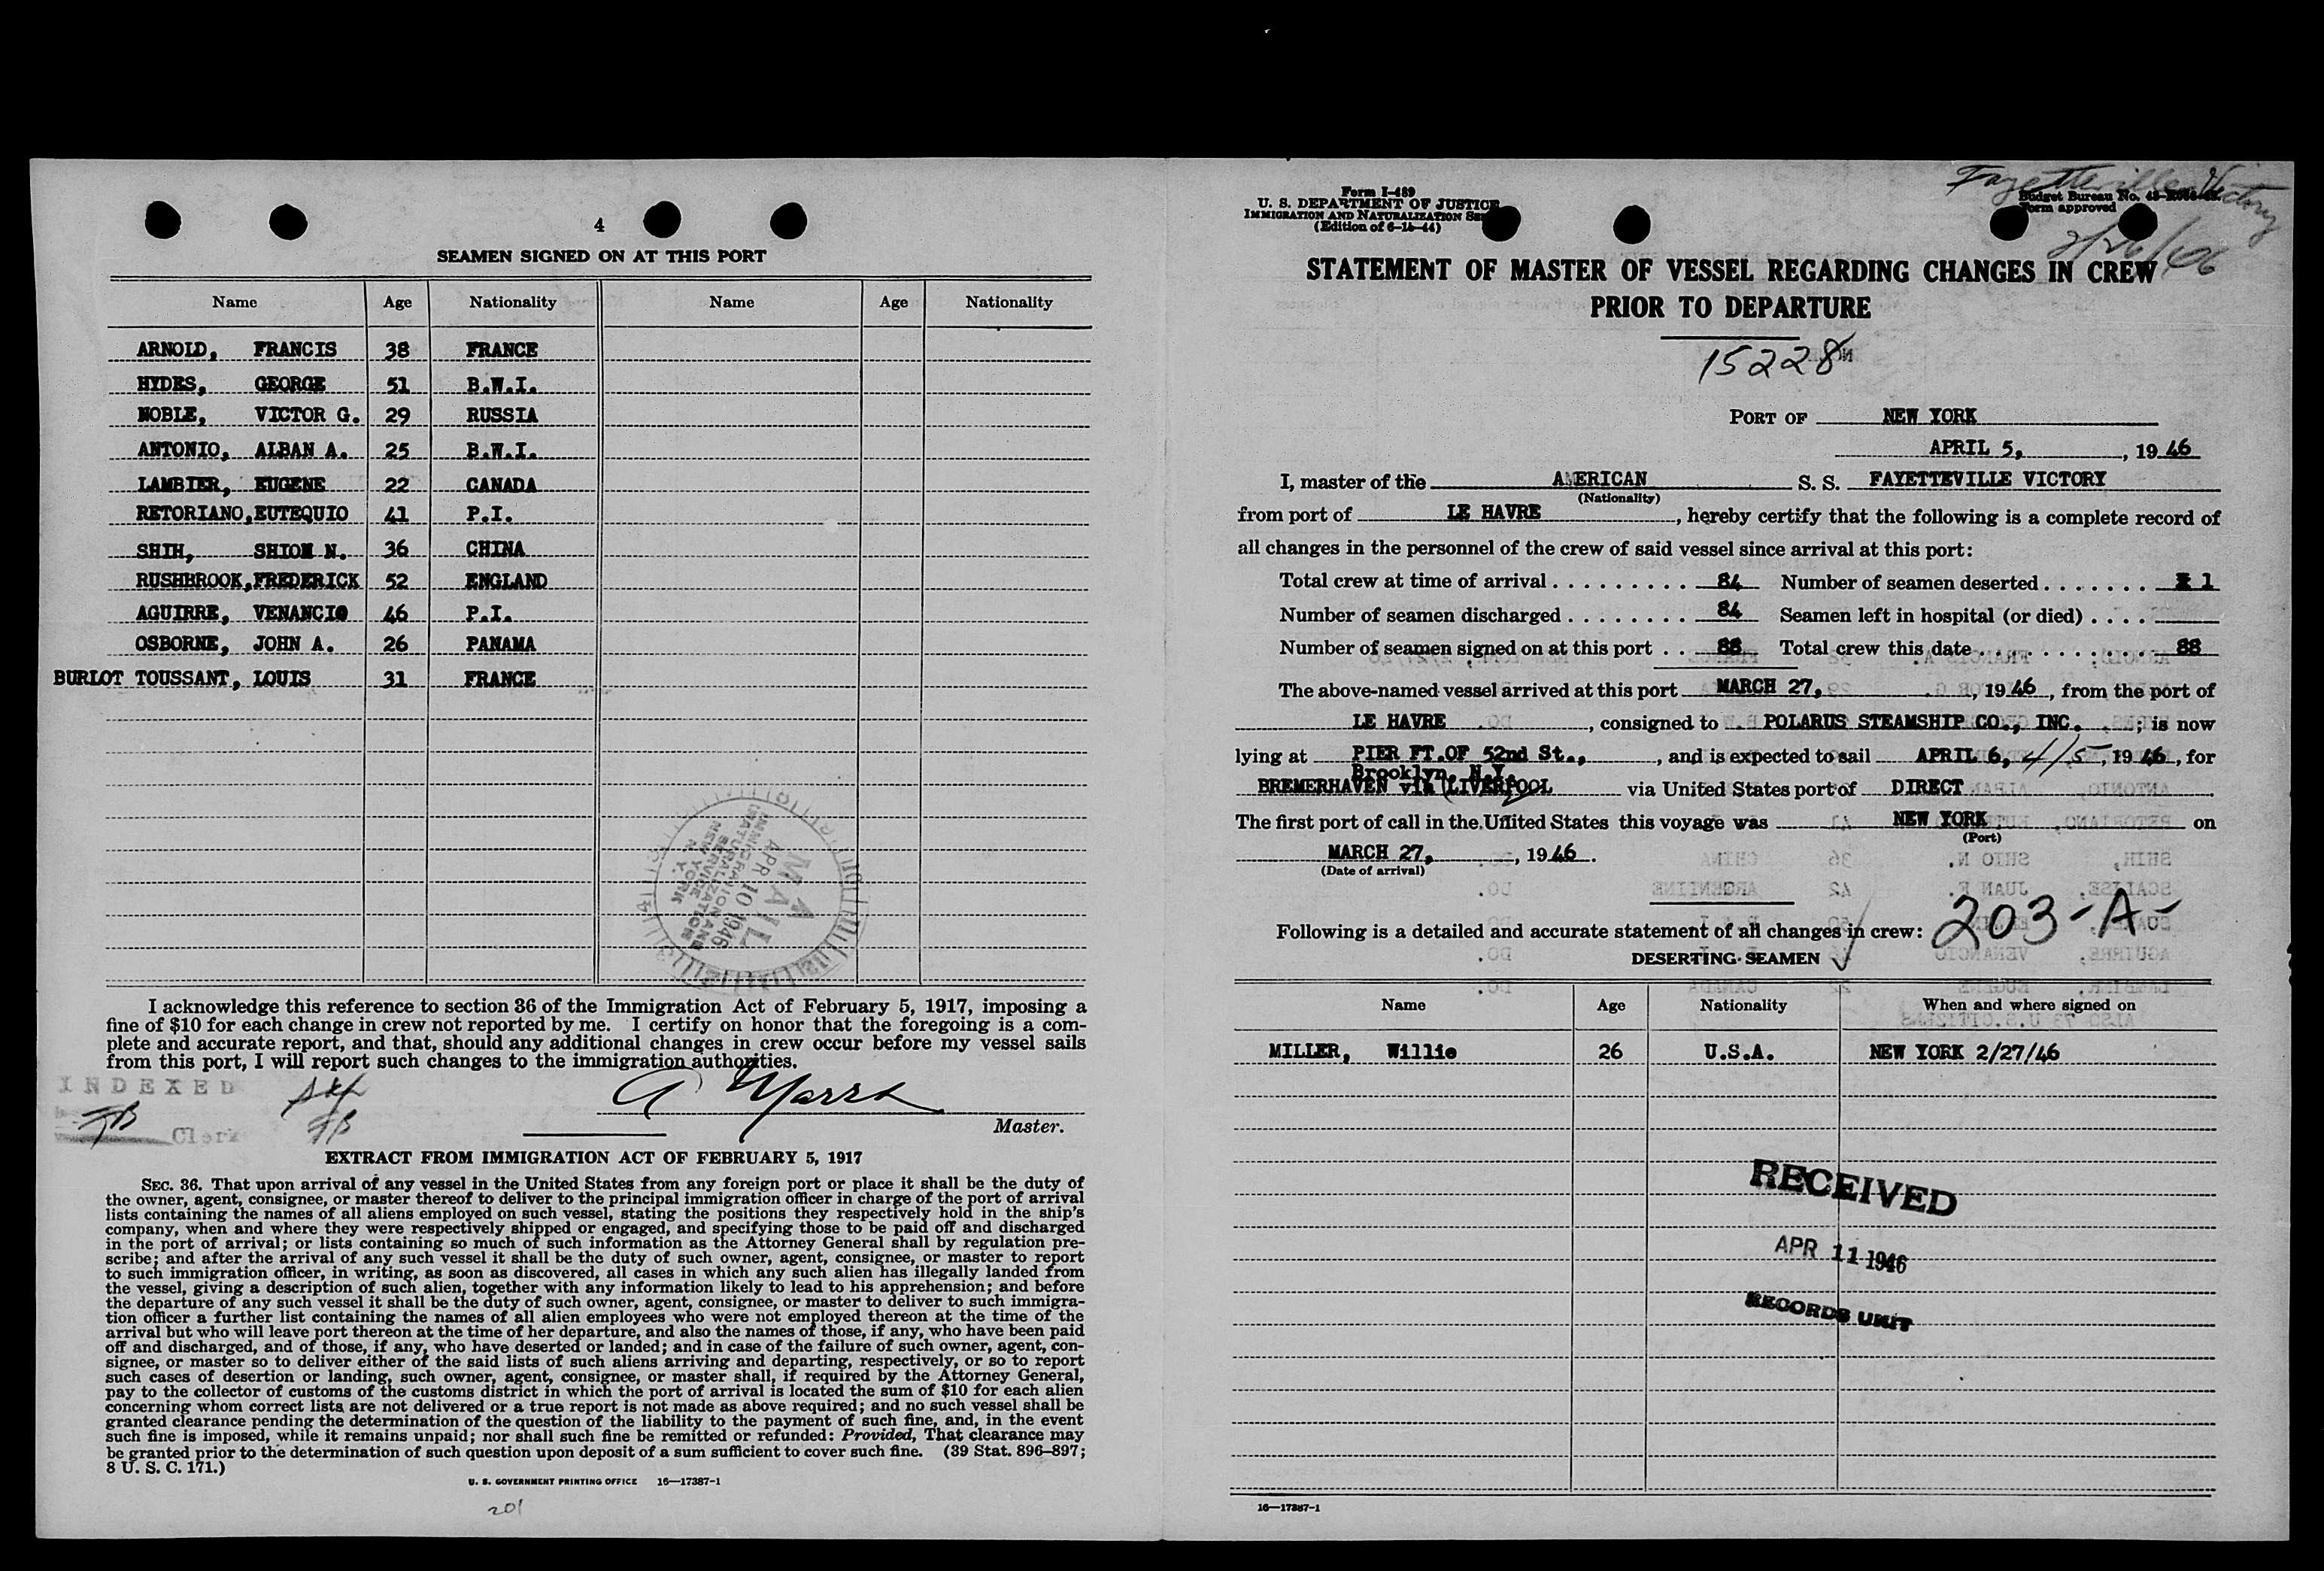 4
SEAMEN SIGNED ON AT THIS PORT
Name Age Nationality Name Age Nationality
ARNOLD, FRANCIS 38 FRANCE
HYDES, GEORGE 51 B.W.I.
NOBLE, VICTOR G. 29 RUSSIA
ANTONIO, ALBAN A. 25 B.W.I.
LAMBIER, EUGENE 22 CANADA
RETORIANO, EUTEQUIO 41 P.I.
SHIH, SHIOM N. 36 CHINA
RUSHBROOK, FREDERICK 52 ENGLAND
AGUIRRE, VENANCIO 46 P.I.
OSBORNE, JOHN A. 26 PANAMA
BURLOT TOUSSANT, LOUIS 31 FRANCE
MAIL
APR 10 1946
IMMIGRATION AND
NATURALIZATION
SERVICE
NEW YORK
N. Y.
I acknowledge this reference to section 36 of the Immigration Act of February 5, 1917, imposing a
fine of $10 for each change in crew not reported by me. I certify on honor that the foregoing is a com-
plete and accurate report, and that, should any additional changes in crew occur before my vessel sails
from this port, I will report such changes to the immigration authorities.
INDEXED
FB Clerk
FB
Master.
EXTRACT FROM IMMIGRATION ACT OF FEBRUARY 5, 1917
SEC. 36. That upon arrival of any vessel in the United States from any foreign port or place it shall be the duty of
the owner, agent, consignee, or master thereof to deliver to the principal immigration officer in charge of the port of arrival
lists containing the names of all aliens employed on such vessel, stating the positions they respectively hold in the ship's
company, when and where they were respectively shipped or engaged, and specifying those to be paid off and discharged
in the port of arrival; or lists containing so much of such information as the Attorney General shall by regulation pre-
scribe; and after the arrival of any such vessel it shall be the duty of such owner, agent, consignee, or master to report
to such immigration officer, in writing, as soon as discovered, all cases in which any such alien has illegally landed from
the vessel, giving a description of such alien, together with any information likely to lead to his apprehension; and before
the departure of any such vessel it shall be the duty of such owner, agent, consignee, or master to deliver to such immigra-
tion officer a further list containing the names of all alien employees who were not employed thereon at the time of the
arrival but who will leave port thereon at the time of her departure, and also the names of those, if any, who have been paid
off and discharged, and of those, if any, who have deserted or landed; and in case of the failure of such owner, agent, con-
signee, or master so to deliver either of the said lists of such aliens arriving and departing, respectively, or so to report
such cases of desertion or landing, such owner, agent, consignee, or master shall, if required by the Attorney General,
pay to the collector of customs of the customs district in which the port of arrival is located the sum of $10 for each alien
concerning whom correct lists are not delivered or a true report is not made as above required; and no such vessel shall be
granted clearance pending the determination of the question of the liability to the payment of such fine, and, in the event
such fine is imposed, while it remains unpaid; nor shall such fine be remitted or refunded: Provided, That clearance may
be granted prior to the determination of such question upon deposit of a sum sufficient to cover such fine. (39 Stat. 896–897;
8 U. S. C. 171.)
U. S. GOVERNMENT PRINTING OFFICE 16—17387-1
201
Form I-489
U. S. DEPARTMENT OF JUSTICE
IMMIGRATION AND NATURALIZATION
(Edition of 6-15-44)
Fayetteville Victory
Budget Bureau No.
Form approved
STATEMENT OF MASTER OF VESSEL REGARDING CHANGES IN CREW
PRIOR TO DEPARTURE
15228
PORT OF NEW YORK
APRIL 5, , 19 46
I, master of the AMERICAN S. S. FAYETTEVILLE VICTORY
(Nationality)
from port of LE HAVRE , hereby certify that the following is a complete record of
all changes in the personnel of the crew of said vessel since arrival at this port:
Total crew at time of arrival . . . . . . . . . 84 Number of seamen deserted . . . . . . . 1
Number of seamen discharged . . . . . . . . 84 Seamen left in hospital (or died) . . . .
Number of seamen signed on at this port . . 88 Total crew this date . . . . . . . . . . . 88
The above-named vessel arrived at this port MARCH 27, , 19 46 , from the port of
LE HAVRE , consigned to POLARUS STEAMSHIP CO., INC. ; is now
lying at PIER FT.OF 52nd St., , and is expected to sail APRIL 6, 4/5 , 19 46 , for
Brooklyn, N.Y.
BREMERHAVEN via (LIVERPOOL via United States port of DIRECT
The first port of call in the United States this voyage was NEW YORK on
(Port)
MARCH 27, , 19 46 .
(Date of arrival)
Following is a detailed and accurate statement of all changes in crew: 203-A-
DESERTING SEAMEN
Name Age Nationality When and where signed on
MILLER, Willie 26 U.S.A. NEW YORK 2/27/46
RECEIVED
APR 11 1946
RECORDS UNIT
16—17387-1